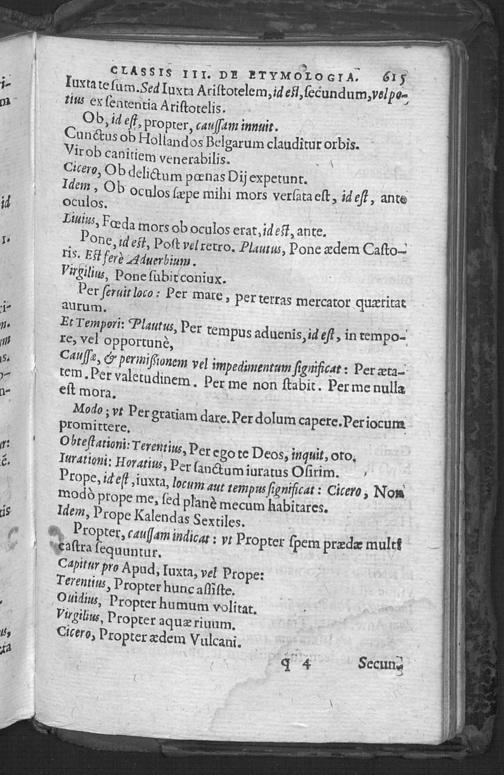 CLASSIS III. DE ETYMOLOGIA. 615
Iuxta te sum. Sed Iuxta Aristotelem, id est, secundum, vel po-
tius ex sententia Aristotelis.
Ob, id est, propter, caussam innuit.
Cunctus ob Hollandos Belgarum clauditur orbis.
Vir ob canitiem venerabilis.
Cicero, Ob delictum pœnas Dij expetunt.
Idem, Ob oculos sæpe mihi mors versata est, id est, ante
oculos.
Liuius, Fœda mors ob oculos erat, id est, ante.
Pone, id est, Post vel retro. Plautus, Pone ædem Casto-
ris. Est ferè Aduerbium.
Virgilius, Pone subit coniux.
Per seruit loco: Per mare, per terras mercator quæritat
aurum.
Et Tempori: Plautus, Per tempus aduenis, id est, in tempo-
re, vel opportunè,
Caussæ, & permißionem vel impedimentum significat: Per æta-
tem. Per valetudinem. Per me non stabit. Per me nulla
est mora.
Modo; vt Per gratiam dare. Per dolum capere. Per iocum
promittere.
Obtestationi: Terentius, Per ego te Deos, inquit, oro.
Iurationi: Horatius, Per sanctum iuratus Osirim.
Prope, id est, iuxta, locum aut tempus significat: Cicero, Non
modò prope me, sed planè mecum habitares.
Idem, Prope Kalendas Sextiles.
Propter, caussam indicat: vt Propter spem prædæ multi
castra sequuntur.
Capitur pro Apud, Iuxta, vel Prope:
Terentius, Propter hunc assiste.
Ouidius, Propter humum volitat.
Virgilius, Propter aquæ riuum.
Cicero, Propter ædem Vulcani.
q 4 Secun-